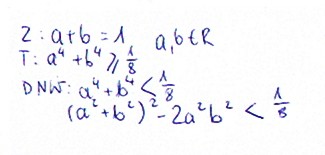 Z: a+b=1   a,b∈R
T: a⁴+b⁴ ⩾ 1/8
DNW: a⁴+b⁴ < 1/8
(a²+b²)² - 2a²b² < 1/8